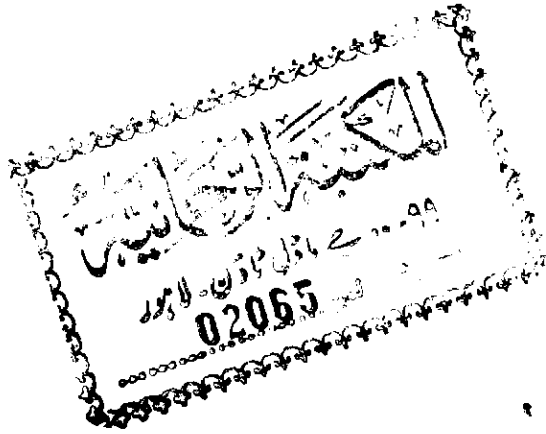 المكتبة الرحمانية
۹۹ ... جے ماڈل ٹاؤن - لاہور
02065